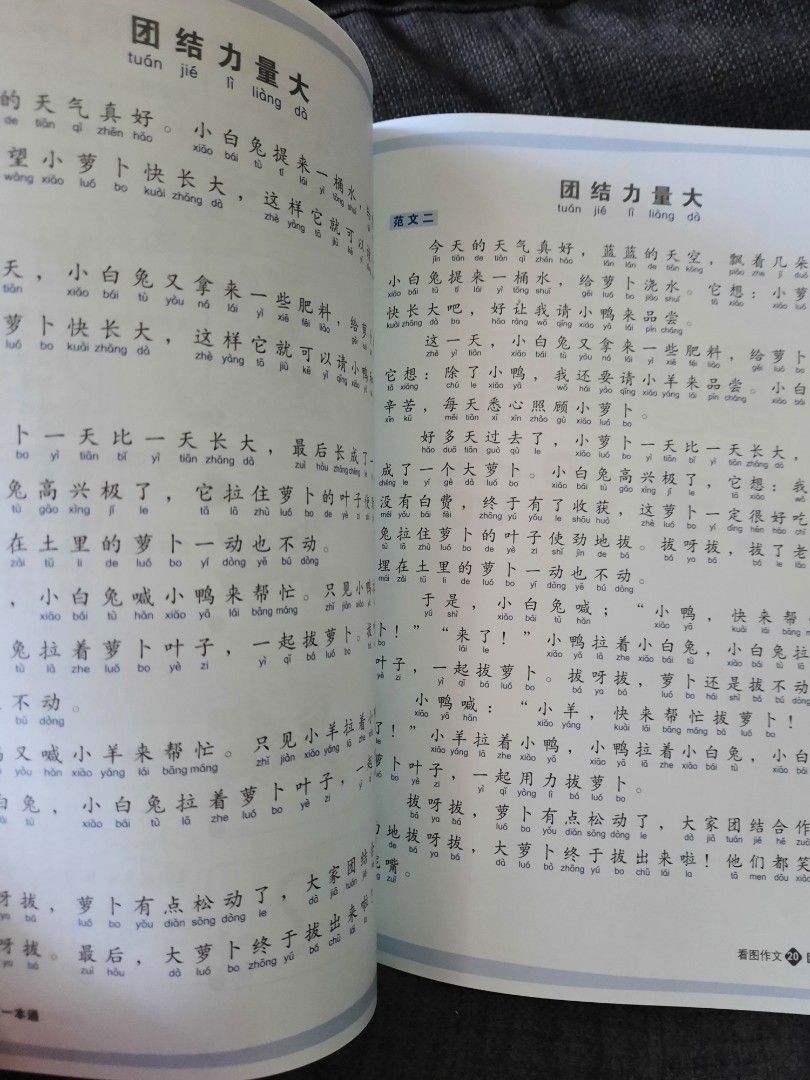 团结力量大
tuán jié lì liàng dà
的天气真好。小白兔提来一桶水，
de tiān qì zhēn hǎo xiǎo bái tù tí lái yì tǒng shuǐ
望小萝卜快长大，这样它就可以请
wàng xiǎo luó bo kuài zhǎng dà zhè yàng tā jiù kě yǐ
天，小白兔又拿来一些肥料，给萝
tiān xiǎo bái tù yòu ná lái yì xiē féi liào gěi luó
萝卜快长大，这样它就可以请小鸭
luó bo kuài zhǎng dà zhè yàng tā jiù kě yǐ qǐng xiǎo yā
卜一天比一天长大，最后长成了一
bo yì tiān bǐ yì tiān zhǎng dà zuì hòu zhǎng chéng le
兔高兴极了，它拉住萝卜的叶子使
tù gāo xìng jí le tā lā zhù luó bo de yè zi
在土里的萝卜一动也不动。
zài tǔ li de luó bo yí dòng yě bú dòng
，小白兔喊小鸭来帮忙。只见小鸭
xiǎo bái tù hǎn xiǎo yā lái bāng máng zhǐ jiàn xiǎo yā
兔拉着萝卜叶子，一起拔萝卜。
tù lā zhe luó bo yè zi yì qǐ bá luó bo
不动。
bú dòng
又喊小羊来帮忙。只见小羊拉着小
yòu hǎn xiǎo yáng lái bāng máng zhǐ jiàn xiǎo yáng lā zhe
白兔，小白兔拉着萝卜叶子，一起
tù xiǎo bái tù lā zhe luó bo yè zi yì qǐ
呀拔，萝卜有点松动了，大家团结
ya bá luó bo yǒu diǎn sōng dòng le dà jiā tuán jié
呀拔。最后，大萝卜终于拔出来啦
ya bá zuì hòu dà luó bo zhōng yú bá chū lái
一本通
团结力量大
tuán jié lì liàng dà
范文二
今天的天气真好，蓝蓝的天空，飘着几朵
jīn tiān de tiān qì zhēn hǎo lán lán de tiān kōng piāo zhe jǐ duǒ
小白兔提来一桶水，给萝卜浇水。它想：小萝
xiǎo bái tù tí lái yì tǒng shuǐ gěi luó bo jiāo shuǐ tā xiǎng xiǎo luó
快长大吧，好让我请小鸭来品尝。
kuài zhǎng dà ba hǎo ràng wǒ qǐng xiǎo yā lái pǐn cháng
这一天，小白兔又拿来一些肥料，给萝卜
zhè yì tiān xiǎo bái tù yòu ná lái yì xiē féi liào gěi luó bo
它想：除了小鸭，我还要请小羊来品尝。小白
tā xiǎng chú le xiǎo yā wǒ hái yào qǐng xiǎo yáng lái pǐn cháng xiǎo bái
辛苦，每天悉心照顾小萝卜。
xīn kǔ měi tiān xī xīn zhào gù xiǎo luó bo
好多天过去了，小萝卜一天比一天长大，
hǎo duō tiān guò qù le xiǎo luó bo yì tiān bǐ yì tiān zhǎng dà
成了一个大萝卜。小白兔高兴极了，它想：我
chéng le yí gè dà luó bo xiǎo bái tù gāo xìng jí le tā xiǎng wǒ
没有白费，终于有了收获，这萝卜一定很好吃
méi yǒu bái fèi zhōng yú yǒu le shōu huò zhè luó bo yí dìng hěn hǎo chī
兔拉住萝卜的叶子使劲地拔。拔呀拔，拔了老
tù lā zhù luó bo de yè zi shǐ jìn de bá bá ya bá bá le lǎo
埋在土里的萝卜一动也不动。
mái zài tǔ li de luó bo yí dòng yě bú dòng
于是，小白兔喊；“小鸭，快来帮
yú shì xiǎo bái tù hǎn xiǎo yā kuài lái bāng
卜！”“来了！”小鸭拉着小白兔，小白兔拉
bo lái le xiǎo yā lā zhe xiǎo bái tù xiǎo bái tù lā
叶子，一起拔萝卜。拔呀拔，萝卜还是拔不动
yè zi yì qǐ bá luó bo bá ya bá luó bo hái shì bá bú dòng
小鸭喊：“小羊，快来帮忙拔萝卜！
xiǎo yā hǎn xiǎo yáng kuài lái bāng máng bá luó bo
了！”小羊拉着小鸭，小鸭拉着小白兔，小白
le xiǎo yáng lā zhe xiǎo yā xiǎo yā lā zhe xiǎo bái tù xiǎo bái
萝卜叶子，一起用力拔萝卜。
bo yè zi yì qǐ yòng lì bá luó bo
拔呀拔，萝卜有点松动了，大家团结合作
bá ya bá luó bo yǒu diǎn sōng dòng le dà jiā tuán jié hé zuò
地拔呀拔，大萝卜终于拔出来啦！他们都笑
de bá ya bá dà luó bo zhōng yú bá chū lái la tā men dōu xiào
嘴。
zuǐ
看图作文 20